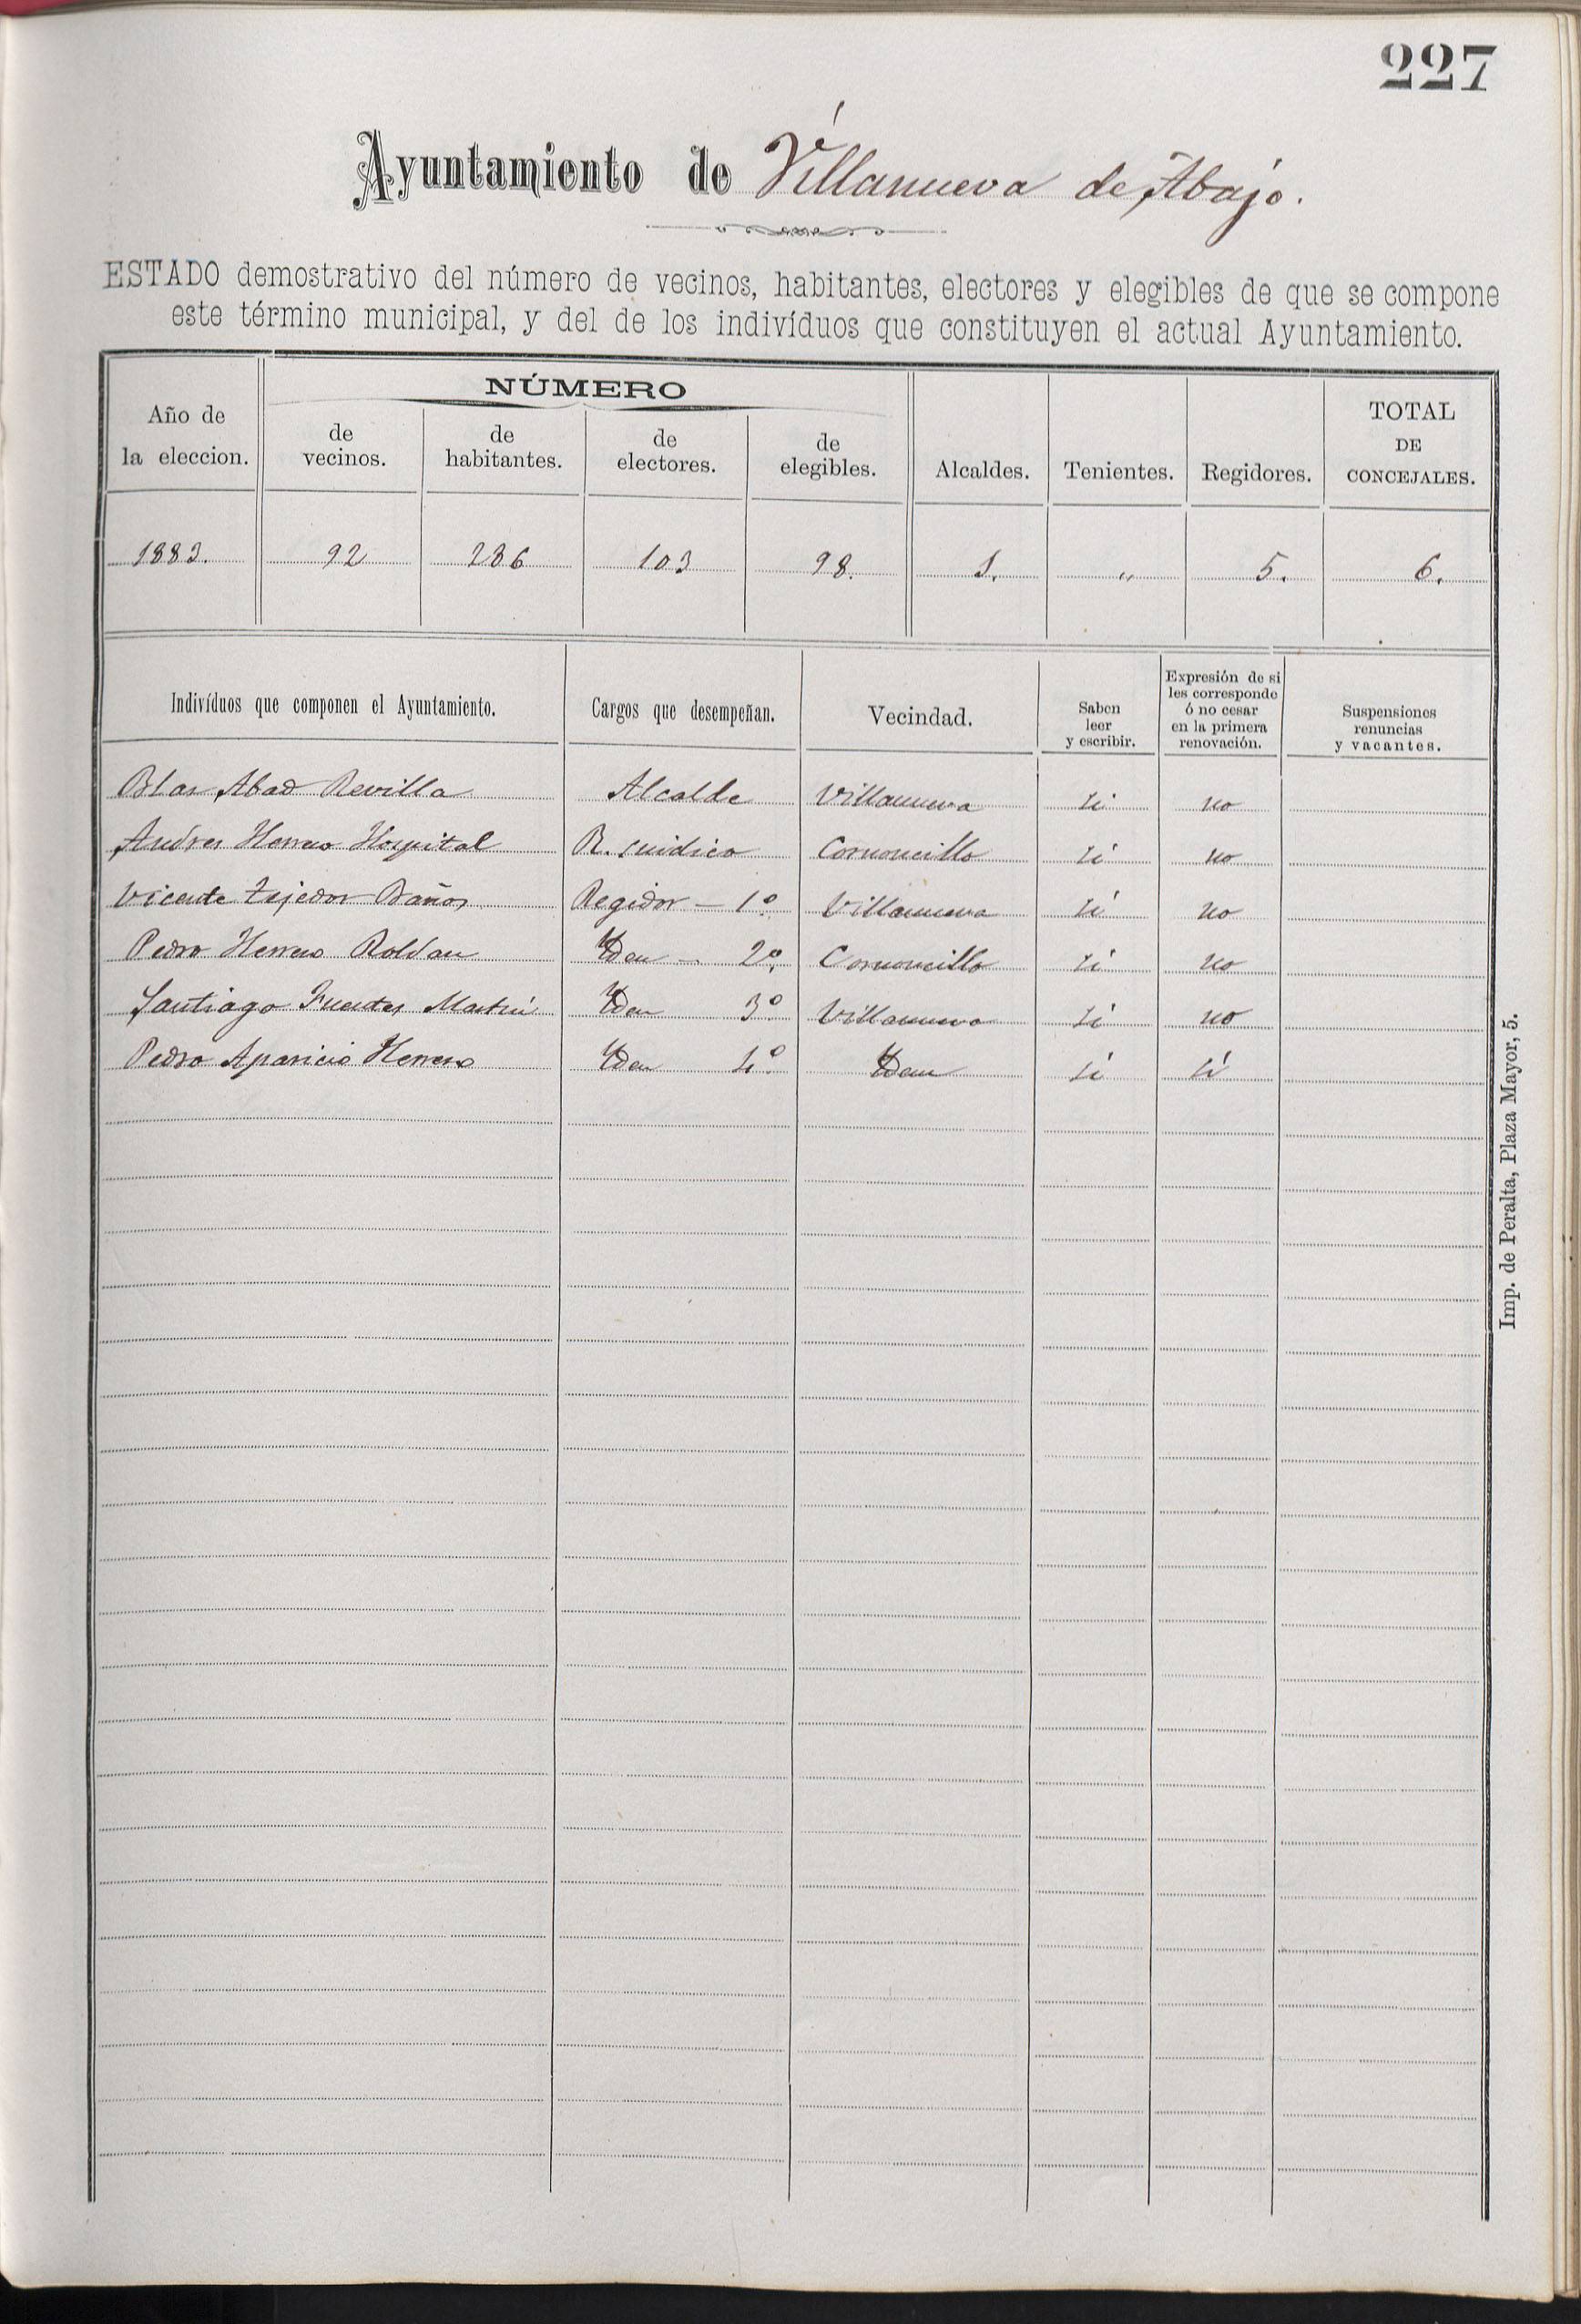 227
Ayuntamiento de Villanueva de Abajo.
ESTADO demostrativo del número de vecinos, habitantes, electores y elegibles de que se compone
este término municipal, y del de los indivíduos que constituyen el actual Ayuntamiento.
NÚMERO
Año de
la eleccion.
de
vecinos.
de
habitantes.
de
electores.
de
elegibles.
Alcaldes.
Tenientes.
Regidores.
TOTAL
DE
CONCEJALES.
1883. 92 286 103 98. 1. " 5. 6.
Indivíduos que componen el Ayuntamiento.
Cargos que desempeñan.
Vecindad.
Saben
leer
y escribir.
Expresión de si
les corresponde
ó no cesar
en la primera
renovación.
Suspensiones
renuncias
y vacantes.
Blas Abad Revilla Alcalde Villanueva si no
Andres Herrero Hospital R. sindico Cornoncillo si no
Vicente Tejedor Baños Regidor — 1º Villanueva si no
Pedro Herrero Roldan Yden — 2º Cornoncillo si no
Santiago Fuentes Martin Yden 3º Villanueva si no
Pedro Aparicio Herrero Yden 4º Ydem si si
Imp. de Peralta, Plaza Mayor, 5.